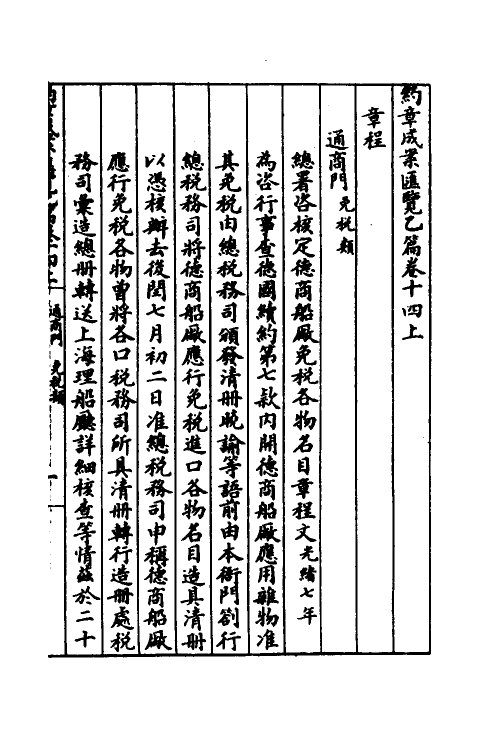 約章成案匯覽乙篇卷十四上
章程
通商門 免稅類
總署咨核定德商船廠免稅各物名目章程文 光緒七年
為咨行事查德國續約第七款內開德商船厰應用雜物准
其免稅由總稅務司頒發清册曉諭等語前由本衙門劄行
總稅務司將德商船厰應行免稅進口各物名目造具清册
以憑核辦去後閏七月初二日准總稅務司申稱德商船厰
應行免稅各物曾將各口稅務司所具清册轉行造册處稅
務司彙造總册轉送上海理船廳詳細核查等情茲於二十
通商門 免稅類 一